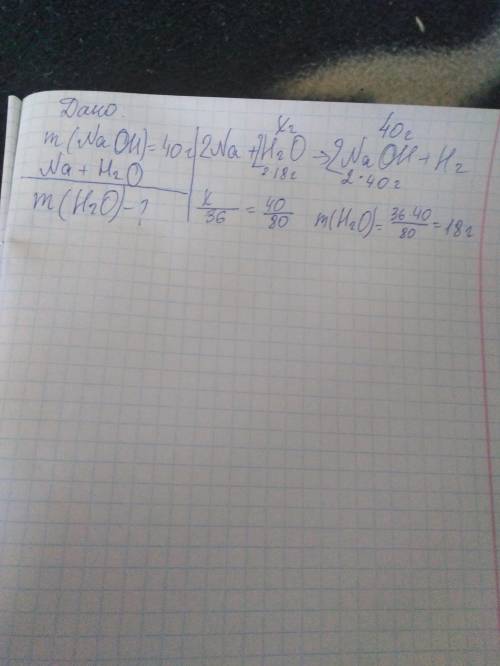 Дано.
m(NaOH)=40г
Na + H₂O
m(H₂O)-?
xг 40г
2Na + 2H₂O → 2NaOH + H₂
2·18г 2·40г
x/36 = 40/80 m(H₂O)= 36·40/80 = 18г